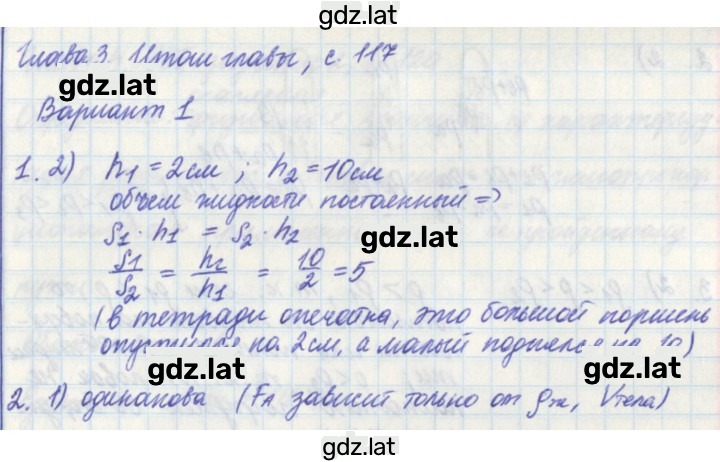 gdz.lat
Глава 3. Итоги главы, с. 117
gdz.lat
gdz.lat
Вариант 1
1. 2) h1 = 2см ; h2 = 10см
объем жидкости постоянный =>
S1 · h1 = S2 · h2
gdz.lat
S1/S2 = h2/h1 = 10/2 = 5
(в тетради опечатка, это большой поршень
опустился на 2см, а малый поднялся на 10)
gdz.lat
gdz.lat
2. 1) одинакова (FA зависит только от ρж, Vтела)
gdz.lat